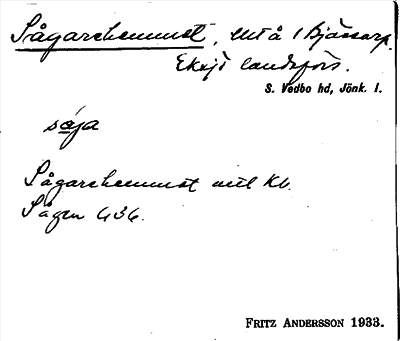 Sågarehemmet, utå i Bjässarp.
Eksjö landsförs.
S. Vedbo hd, Jönk. l.
såja
Sågarehemmet
Sågen 436.
FRITZ ANDERSSON 1933.